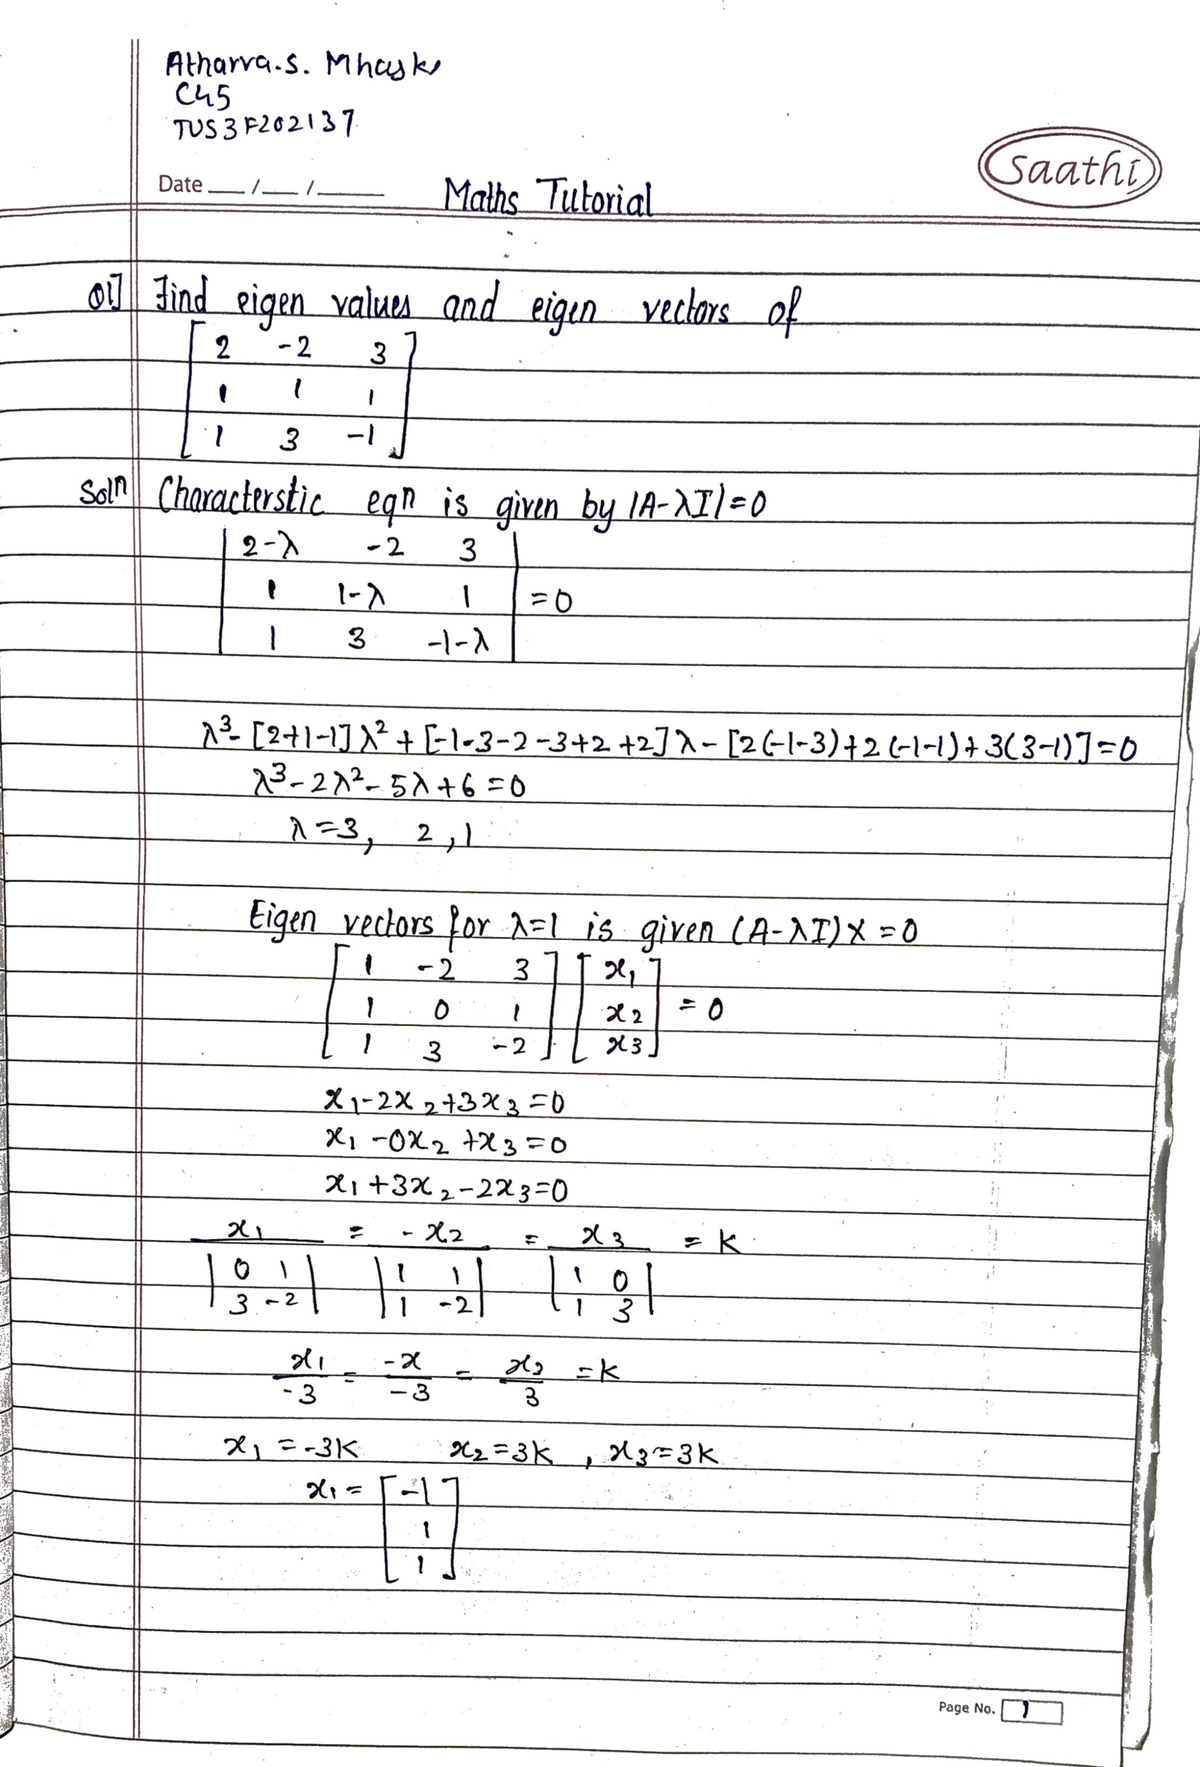 Atharva.S. Mhaske
C45
TUS3F202137
Saathi
Date __/__/____
Maths Tutorial
Q1] Find eigen values and eigen vectors of
[ 2 -2 3 ]
[ 1 1 1 ]
[ 1 3 -1 ]
Soln Characterstic eqn is given by |A-λI|=0
| 2-λ -2 3 |
| 1 1-λ 1 | =0
| 1 3 -1-λ |
λ³-[2+1-1]λ²+[-1-3-2-3+2+2]λ-[2(-1-3)+2(-1-1)+3(3-1)]=0
λ³-2λ²-5λ+6=0
λ=3, 2,1
Eigen vectors for λ=1 is given (A-λI)X=0
[ 1 -2 3 ] [ x₁ ]
[ 1 0 1 ] [ x₂ ] = 0
[ 1 3 -2 ] [ x₃ ]
x₁-2x₂+3x₃=0
x₁-0x₂+x₃=0
x₁+3x₂-2x₃=0
x₁ = -x₂ = x₃ = k
| 0 1 | | 1 1 | | 1 0 |
| 3 -2 | | 1 -2 | | 1 3 |
x₁ = -x = x₃ = k
-3 -3 3
x₁=-3k x₂=3k , x₃=3k
x₁= [ -1 ]
[ 1 ]
[ 1 ]
Page No. 1